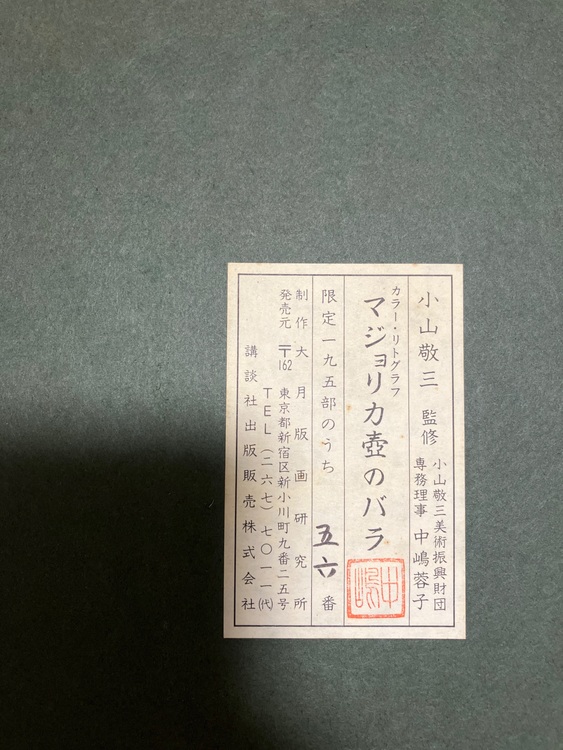 小山敬三 監修
小山敬三美術振興財団
専務理事 中嶋蓉子
カラー・リトグラフ
マジョリカ壺のバラ
中嶋
限定一九五部のうち 五六 番
制作 大月版画研究所
発売元 〒162 東京都新宿区新小川町九番二五号
TEL(二六七)七〇一一(代)
講談社出版販売株式会社